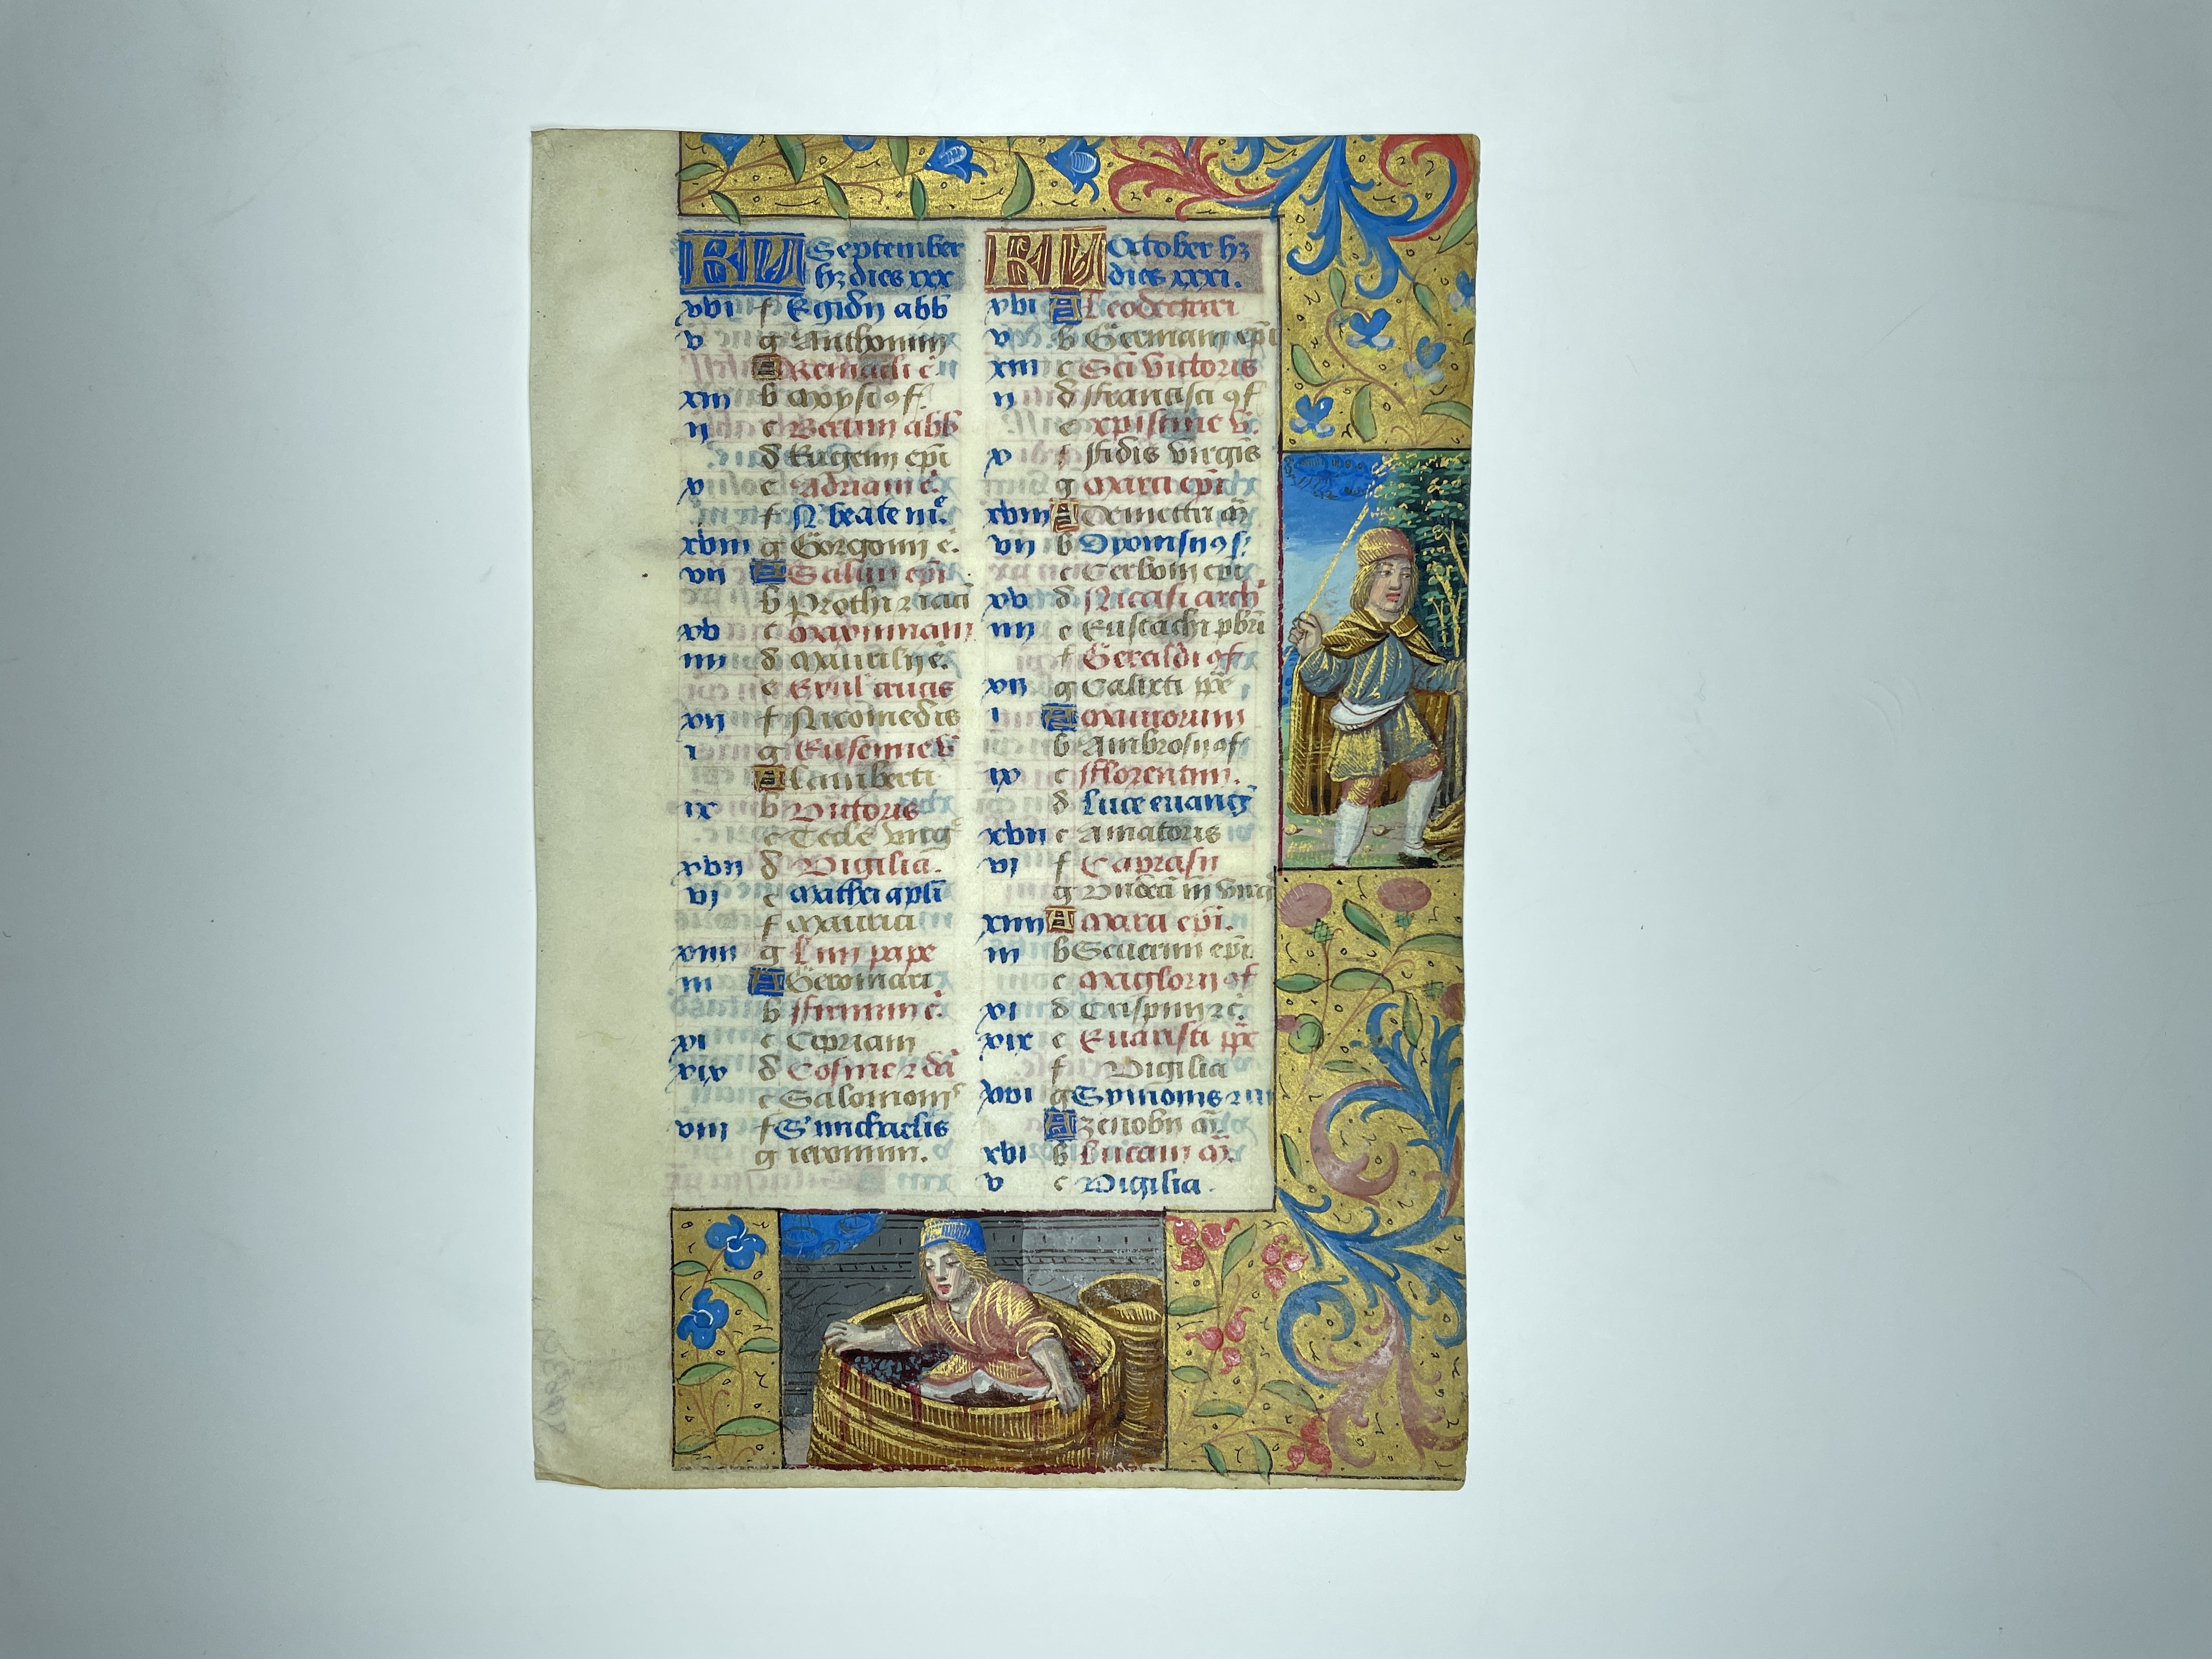 KL September
hz dies xxx
xvi f Egidii abb
v g Anthonini
A Remacli c
xiii b Moysi ꝯf.
ii c Bertini abb
d Eugenii epi
v e Adriani c.
f N beate m.e
xviii g Gorgonii c.
vii A Salvii epi
b Prothi ⁊ iaci
xv c Maximiani
iiii d Maurilii e.
e Exul crucis
xii f Nicomedis
i g Eufemie v
A Lamberti
ix b Victoris
c Tecle virg
xvii d Vigilia.
vi e Mathei apli
f Maurici
xiiii g Lini pape
iii A Geromari
b Firmini c.
xi c Cipriani
xix d Cosme ⁊ da
e Salomonis
viii f S' michaelis
g ieronimi.
KL October hz
dies xxxi.
xvi A Leodegarii
v b Germani epi
xiii c Sci victoris
ii d Francisci ꝯf
e xpistine v.
x f Fidis virgis
g Marci epi
xviii A Demetrii m
vii b Dyonisii ꝯf.
c Cerboni epi
xv d Nicasi arch
iiii e Eustachi pbri
f Geraldi ꝯf
xii g Calixti pp
i A Maurorum
b Ambrosii ꝯf
ix c Florentini.
d Luce evang
xvii e Amatoris
vi f Caprasii
g Undeci m virg
xiiii A Marci epi.
iii b Severini epi.
c Maglorii ꝯf
xi d Crispini ⁊ c.
xix e Evaristi pp
f Vigilia
viii g Symonis ⁊ iu
A zenobii m
xvi b Lucani m.
v c Vigilia.